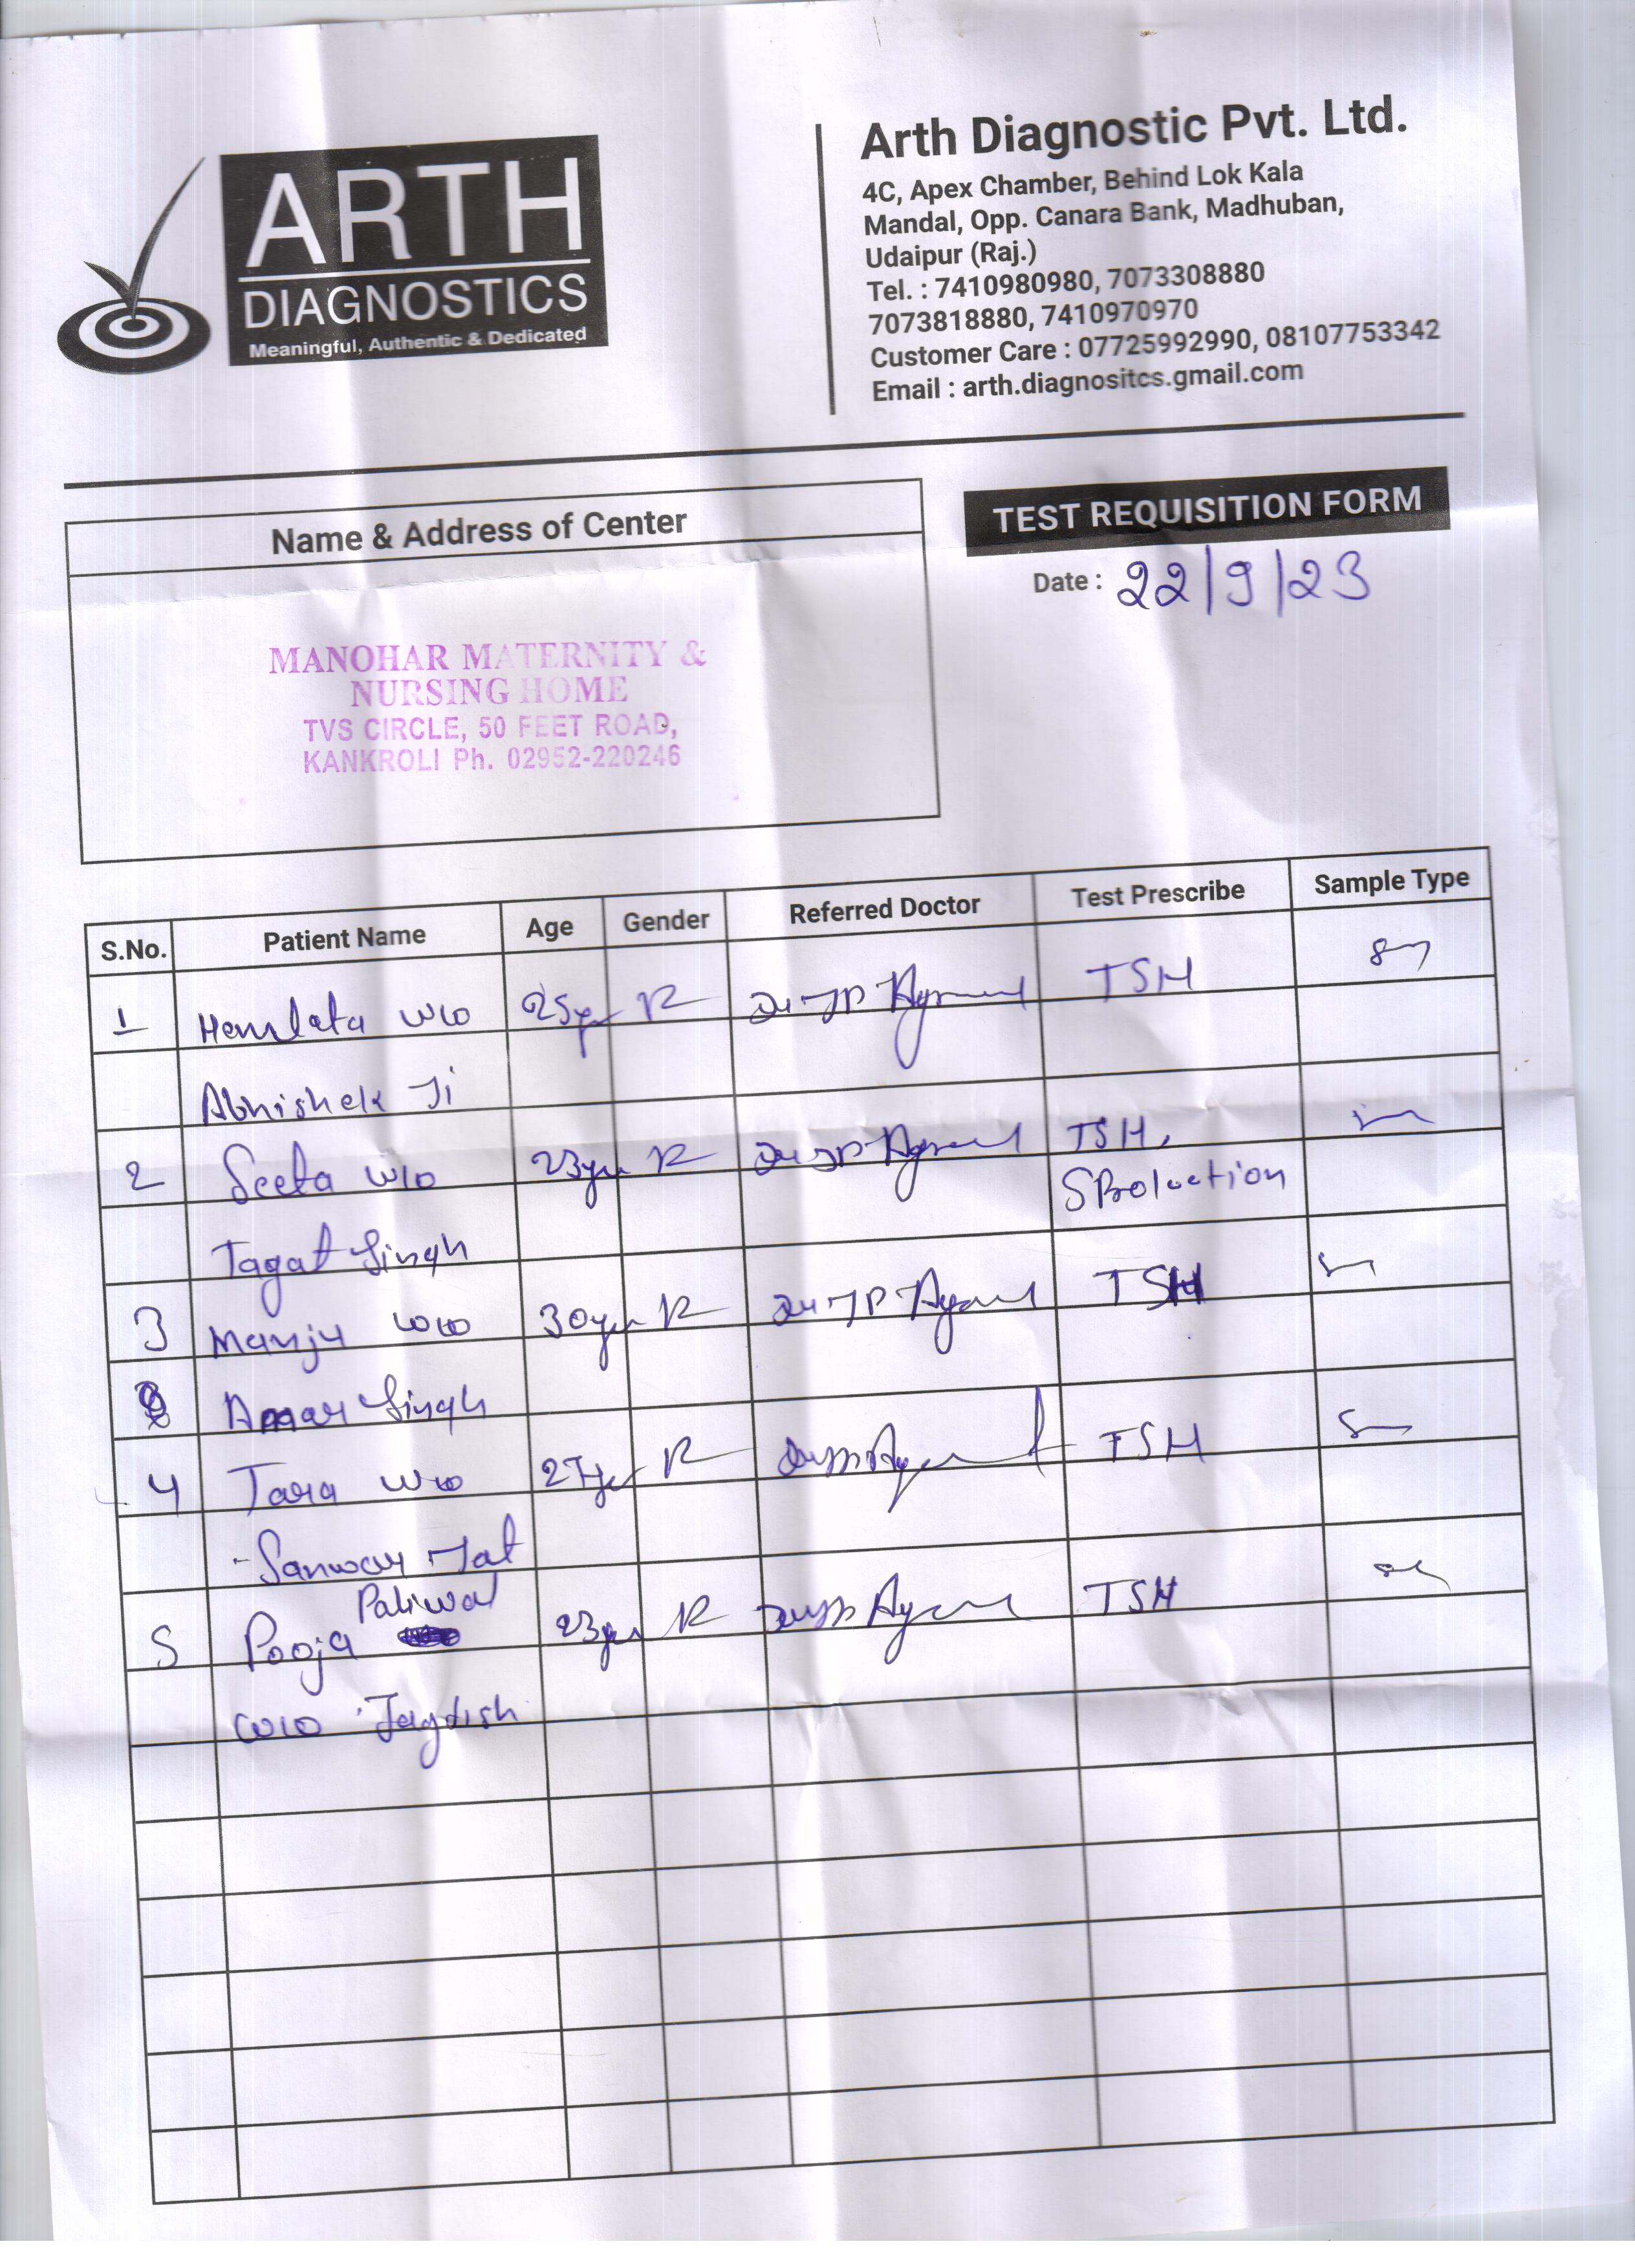 ARTH
DIAGNOSTICS
Meaningful, Authentic & Dedicated
Arth Diagnostic Pvt. Ltd.
4C, Apex Chamber, Behind Lok Kala
Mandal, Opp. Canara Bank, Madhuban,
Udaipur (Raj.)
Tel. : 7410980980, 7073308880
7073818880, 7410970970
Customer Care : 07725992990, 08107753342
Email : arth.diagnositcs.gmail.com
Name & Address of Center
MANOHAR MATERNITY &
NURSING HOME
TVS CIRCLE, 50 FEET ROAD,
KANKROLI Ph. 02952-220246
TEST REQUISITION FORM
Date : 22/9/23
S.No. Patient Name Age Gender Referred Doctor Test Prescribe Sample Type
1 Hemlata W/O 25yr JP TSH
Abhishek Ji
2 Seeta W/O 23yr JP TSH,
Tagat Singh
3 Manju W/O 30yr JP TSH
Amar Singh
4 Tara W/O 27yr TSH
Sanwar
Paliwal
5 Pooja 23yr TSH
W/O Jagdish